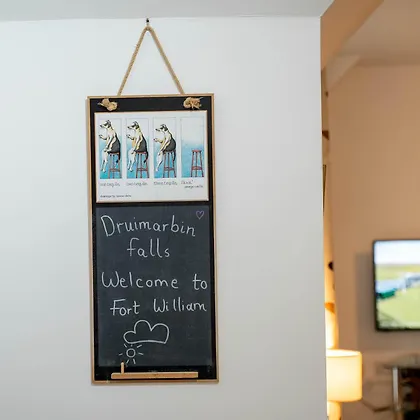 Druimarbin
falls
Welcome to
Fort William